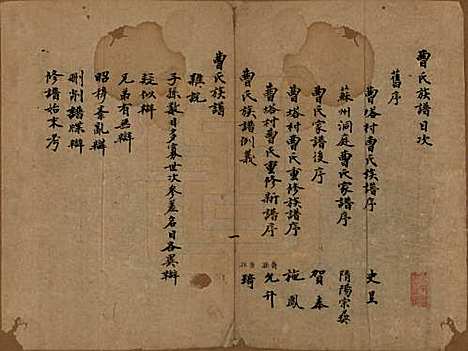 曹氏族譜目次
舊序
曹塔村曹氏族譜序 史昱
蘇州洞庭曹氏家譜序 隋陽宗
曹氏家譜後序 賀泰
曹塔村曹氏重修族譜序 施鳳
曹塔村曹氏重修新譜序 允升
曹氏族譜例義 琦
一
曹氏族譜
雜說
子孫數目多寡世次參差名目各異辯
疑似辯
兄弟有無辯
昭穆紊亂辯
刪削譜牒辯
修譜始末考